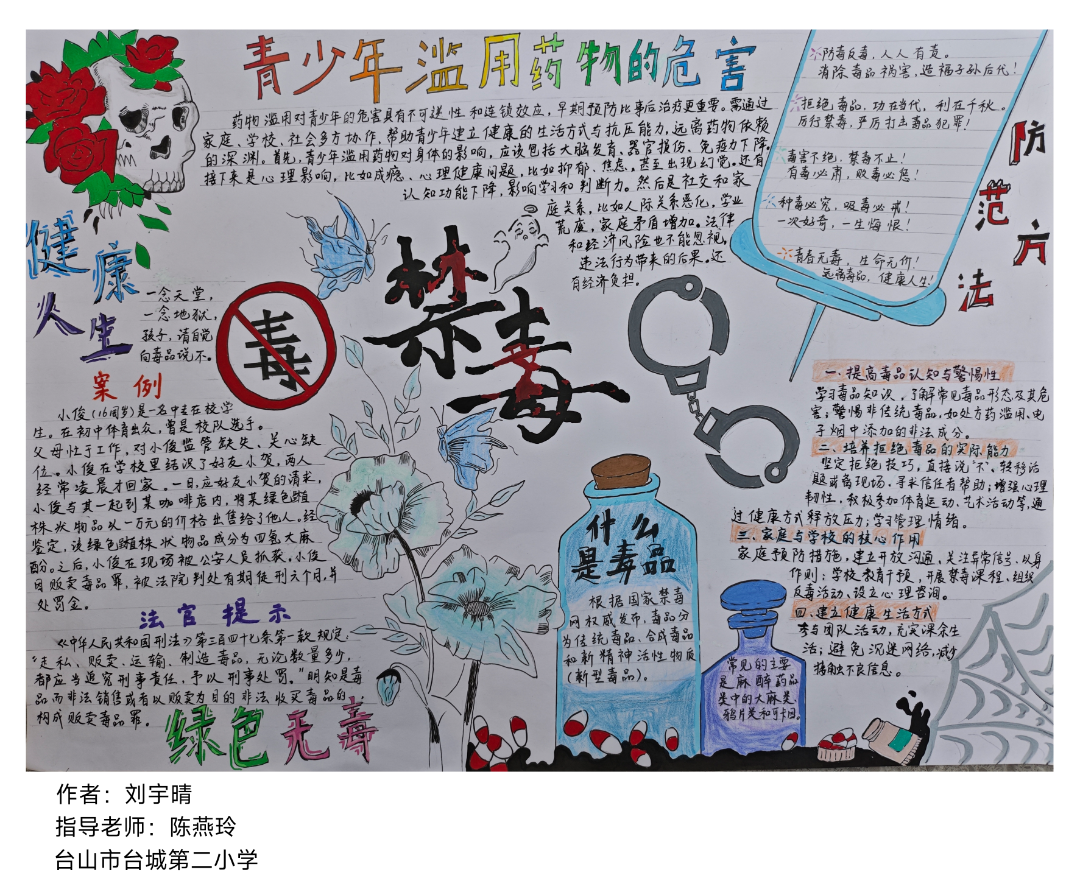 青少年滥用药物的危害
药物滥用对青少年的危害具有不可逆性和连锁效应，早期预防比事后治疗更重要。需通过
家庭、学校、社会多方协作，帮助青少年建立健康的生活方式与抗压能力，远离药物依赖
的深渊。首先，青少年滥用药物对身体的影响，应该包括大脑发育、器官损伤、免疫力下降。
接下来是心理影响，比如成瘾、心理健康问题，比如抑郁、焦虑，甚至出现幻觉。还有
认知功能下降，影响学习和判断力。然后是社交和家
庭关系，比如人际关系恶化，学业
荒废，家庭矛盾增加。法律
和经济风险也不能忽视，
违法行为带来的后果。还
有经济负担。
防毒反毒，人人有责。
消除毒品祸害，造福子孙后代！
拒绝毒品，功在当代，利在千秋。
厉行禁毒，严厉打击毒品犯罪！
毒害不绝，禁毒不止！
有毒必肃，败毒必惩！
种毒必究，吸毒必戒！
一次好奇，一生悔恨！
青春无毒，生命无价！
远离毒品，健康人生！
防范方法
健康人生
一念天堂，
一念地狱，
孩子，请自觉
向毒品说不。
毒
禁毒
案例
小俊（16周岁）是一名中专在校学
生。在初中体育出众，曾是校队选手。
父母忙于工作，对小俊监管缺失、关心缺
位。小俊在学校里结识了好友小贺，两人
经常凌晨才回家。一日，应好友小贺的请求，
小俊与其一起到某咖啡店内，将某绿色植
株状物品以一万元的价格出售给了他人。经
鉴定，该绿色植株状物品成分为四氢大麻
酚。之后，小俊在现场被公安人员抓获。小俊
因贩卖毒品罪，被法院判处有期徒刑六个月，并
处罚金。
法官提示
《中华人民共和国刑法》第三百四十七条第一款规定：
“走私、贩卖、运输、制造毒品，无论数量多少，
都应当追究刑事责任，予以刑事处罚。”明知是毒
品而非法销售或者以贩卖为目的非法收买毒品的，
构成贩卖毒品罪。
绿色无毒
什么
是毒品
根据国家禁毒
网权威发布，毒品分
为传统毒品、合成毒品
和新精神活性物质
（新型毒品）。
常见的主要
是麻醉药品
类中的大麻类、
鸦片类和可卡因。
一、提高毒品认知与警惕性
学习毒品知识，了解常见毒品形态及其危
害，警惕非传统毒品，如处方药滥用、电
子烟中添加的非法成分。
二、培养拒绝毒品的实际能力
坚定拒绝技巧，直接说“不”、转移话
题或离现场、寻求信任者帮助；增强心理
韧性，积极参加体育运动、艺术活动等，通
过健康方式释放压力，学习管理情绪。
三、家庭与学校的核心作用
家庭预防措施，建立开放沟通，关注异常信号、以身
作则；学校教育干预，开展禁毒课程、组织
反毒活动、设立心理咨询。
四、建立健康生活方式
参与团队活动，充实课余生
活；避免沉迷网络，减少
接触不良信息。
作者：刘宇晴
指导老师：陈燕玲
台山市台城第二小学